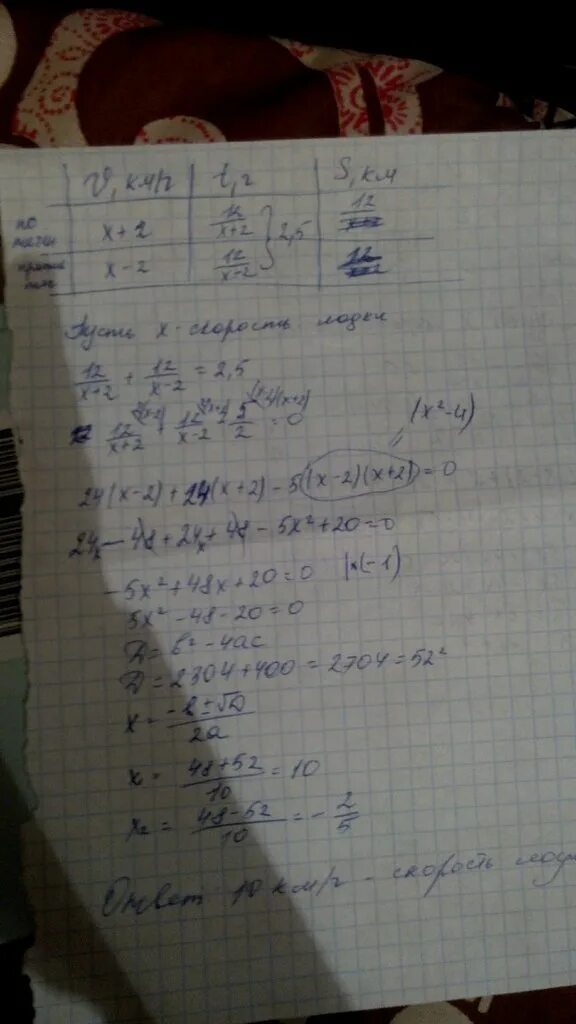 V, км/г t, г S, км
по течен x+2 12/(x+2) } 2,5 12
против теч x-2 12/(x-2)
Пусть x - скорость лодки
12/(x+2) + 12/(x-2) = 2,5
12/(x+2) + 12/(x-2) - 5/2 = 0
(x²-4)
24(x-2) + 24(x+2) - 5(x-2)(x+2) = 0
24x - 48 + 24x + 48 - 5x² + 20 = 0
-5x² + 48x + 20 = 0 |×(-1)
5x² - 48 - 20 = 0
D = b² - 4ac
D = 2304 + 400 = 2704 = 52²
x = (-b ± √D)/2a
x = (48+52)/10 = 10
x₂ = (48-52)/10 = -2/5
Ответ 10 км/г - скорость лодк